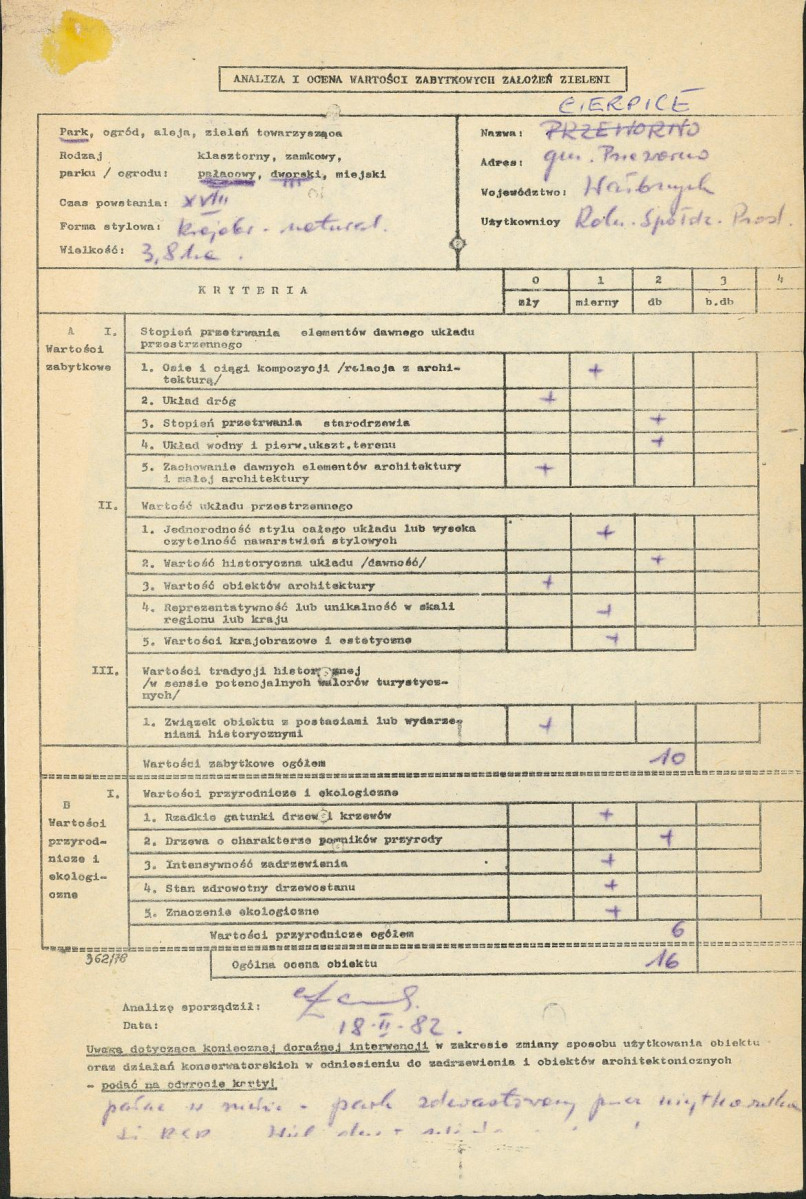 ANALIZA I OCENA WARTOŚCI ZABYTKOWYCH ZAŁOŻEŃ ZIELENI
CIERPICE
Park, ogród, aleja, zieleń towarzysząca
Nazwa: PRZEWORNO
Rodzaj klasztorny, zamkowy,
Adres: gm. Przeworno
parku / ogrodu: pałacowy, dworski, miejski
Województwo: Wałbrzych
Czas powstania: XVIII
Użytkownicy Roln. Spółdz. Prod.
Forma stylowa: krajobr - natural.
Wielkość: 3,8 ha.
KRYTERIA
0 1 2 3 4
zły mierny db b.db
A I. Stopień przetrwania elementów dawnego układu
Wartości przestrzennego
zabytkowe
1. Osie i ciągi kompozycji /relacja z archi- +
tekturą/
2. Układ dróg +
3. Stopień przetrwania starodrzewia +
4. Układ wodny i pierw.ukszt.terenu +
5. Zachowanie dawnych elementów architektury +
i małej architektury
II. Wartość układu przestrzennego
1. Jednorodność stylu całego układu lub wysoka +
czytelność nawarstwień stylowych
2. Wartość historyczna układu /dawność/ +
3. Wartość obiektów architektury +
4. Reprezentatywność lub unikalność w skali +
regionu lub kraju
5. Wartości krajobrazowe i estetyczne +
III. Wartości tradycji historycznej
/w sensie potencjalnych walorów turystycz-
nych/
1. Związek obiektu z postaciami lub wydarze- +
niami historycznymi
Wartości zabytkowe ogółem 10
B I. Wartości przyrodnicze i ekologiczne
Wartości
przyrod-
nicze i
ekologi-
czne
1. Rzadkie gatunki drzew i krzewów +
2. Drzewa o charakterze pomników przyrody +
3. Intensywność zadrzewienia +
4. Stan zdrowotny drzewostanu +
5. Znaczenie ekologiczne +
Wartości przyrodnicze ogółem 6
362/78
Ogólna ocena obiektu 16
Analizę sporządził:
Data: 18-II-82.
Uwagę dotyczącą koniecznej doraźnej interwencji w zakresie zmiany sposobu użytkowania obiektu
oraz działań konserwatorskich w odniesieniu do zadrzewienia i obiektów architektonicznych
- podać na odwrocie karty!
pałac w ruinie - park zdewastowany przez użytkownika